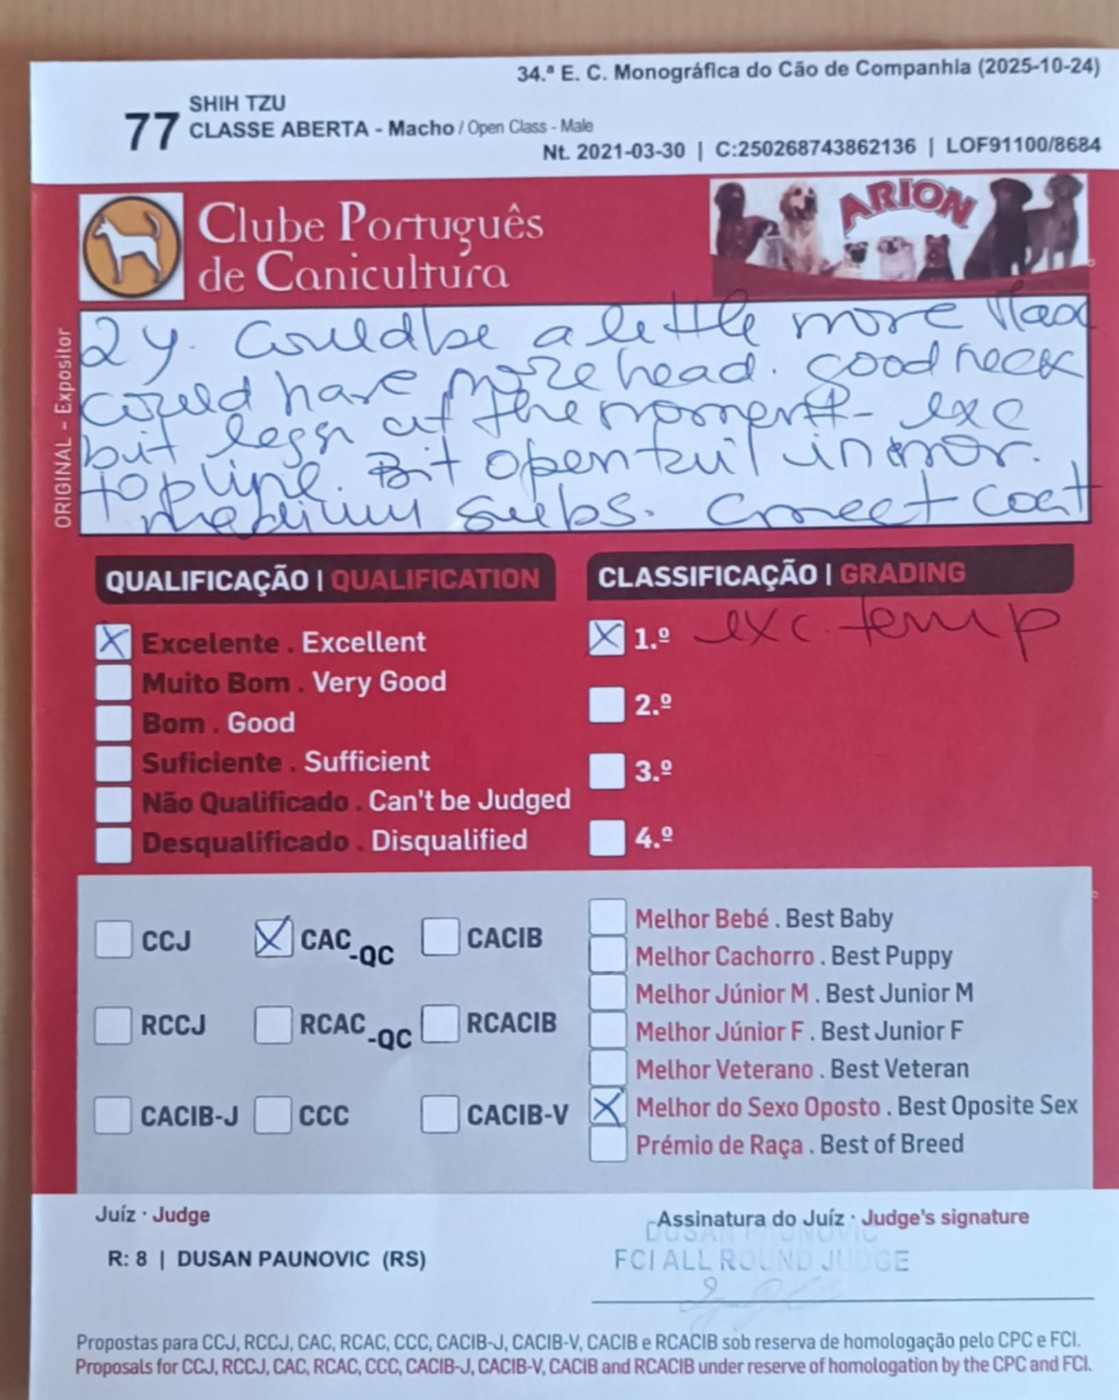 34.ª E. C. Monográfica do Cão de Companhia (2025-10-24)
SHIH TZU
77 CLASSE ABERTA - Macho / Open Class - Male
Nt. 2021-03-30 | C:250268743862136 | LOF91100/8684
Clube Português
de Canicultura
ARION
ORIGINAL - Expositor
2y. Could be a little more
could have more head. good neck
but less at the moment - exc
topline. Bit open tail in mov.
medium subs. correct coat
QUALIFICAÇÃO | QUALIFICATION
CLASSIFICAÇÃO | GRADING
X Excelente . Excellent
Muito Bom . Very Good
Bom . Good
Suficiente . Sufficient
Não Qualificado . Can't be Judged
Desqualificado . Disqualified
X 1.º exc. temp
2.º
3.º
4.º
CCJ X CAC-QC CACIB
RCCJ RCAC-QC RCACIB
CACIB-J CCC CACIB-V
Melhor Bebé . Best Baby
Melhor Cachorro . Best Puppy
Melhor Júnior M . Best Junior M
Melhor Júnior F . Best Junior F
Melhor Veterano . Best Veteran
X Melhor do Sexo Oposto . Best Oposite Sex
Prémio de Raça . Best of Breed
Juíz · Judge
R: 8 | DUSAN PAUNOVIC (RS)
Assinatura do Juíz · Judge's signature
DUSAN PAUNOVIC
FCI ALL ROUND JUDGE
Propostas para CCJ, RCCJ, CAC, RCAC, CCC, CACIB-J, CACIB-V, CACIB e RCACIB sob reserva de homologação pelo CPC e FCI.
Proposals for CCJ, RCCJ, CAC, RCAC, CCC, CACIB-J, CACIB-V, CACIB and RCACIB under reserve of homologation by the CPC and FCI.